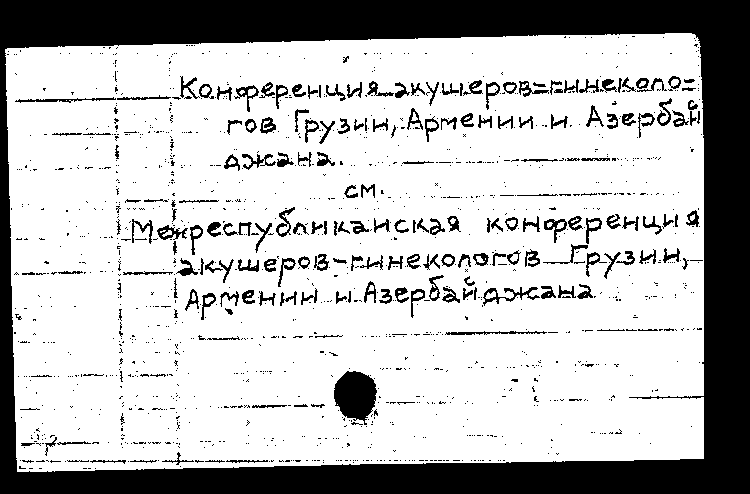 Конференция акушеров-гинеколо-
гов Грузии, Армении и Азербай
джана.
см.
Межреспубликанская конференция
акушеров-гинекологов Грузии,
Армении и Азербайджана